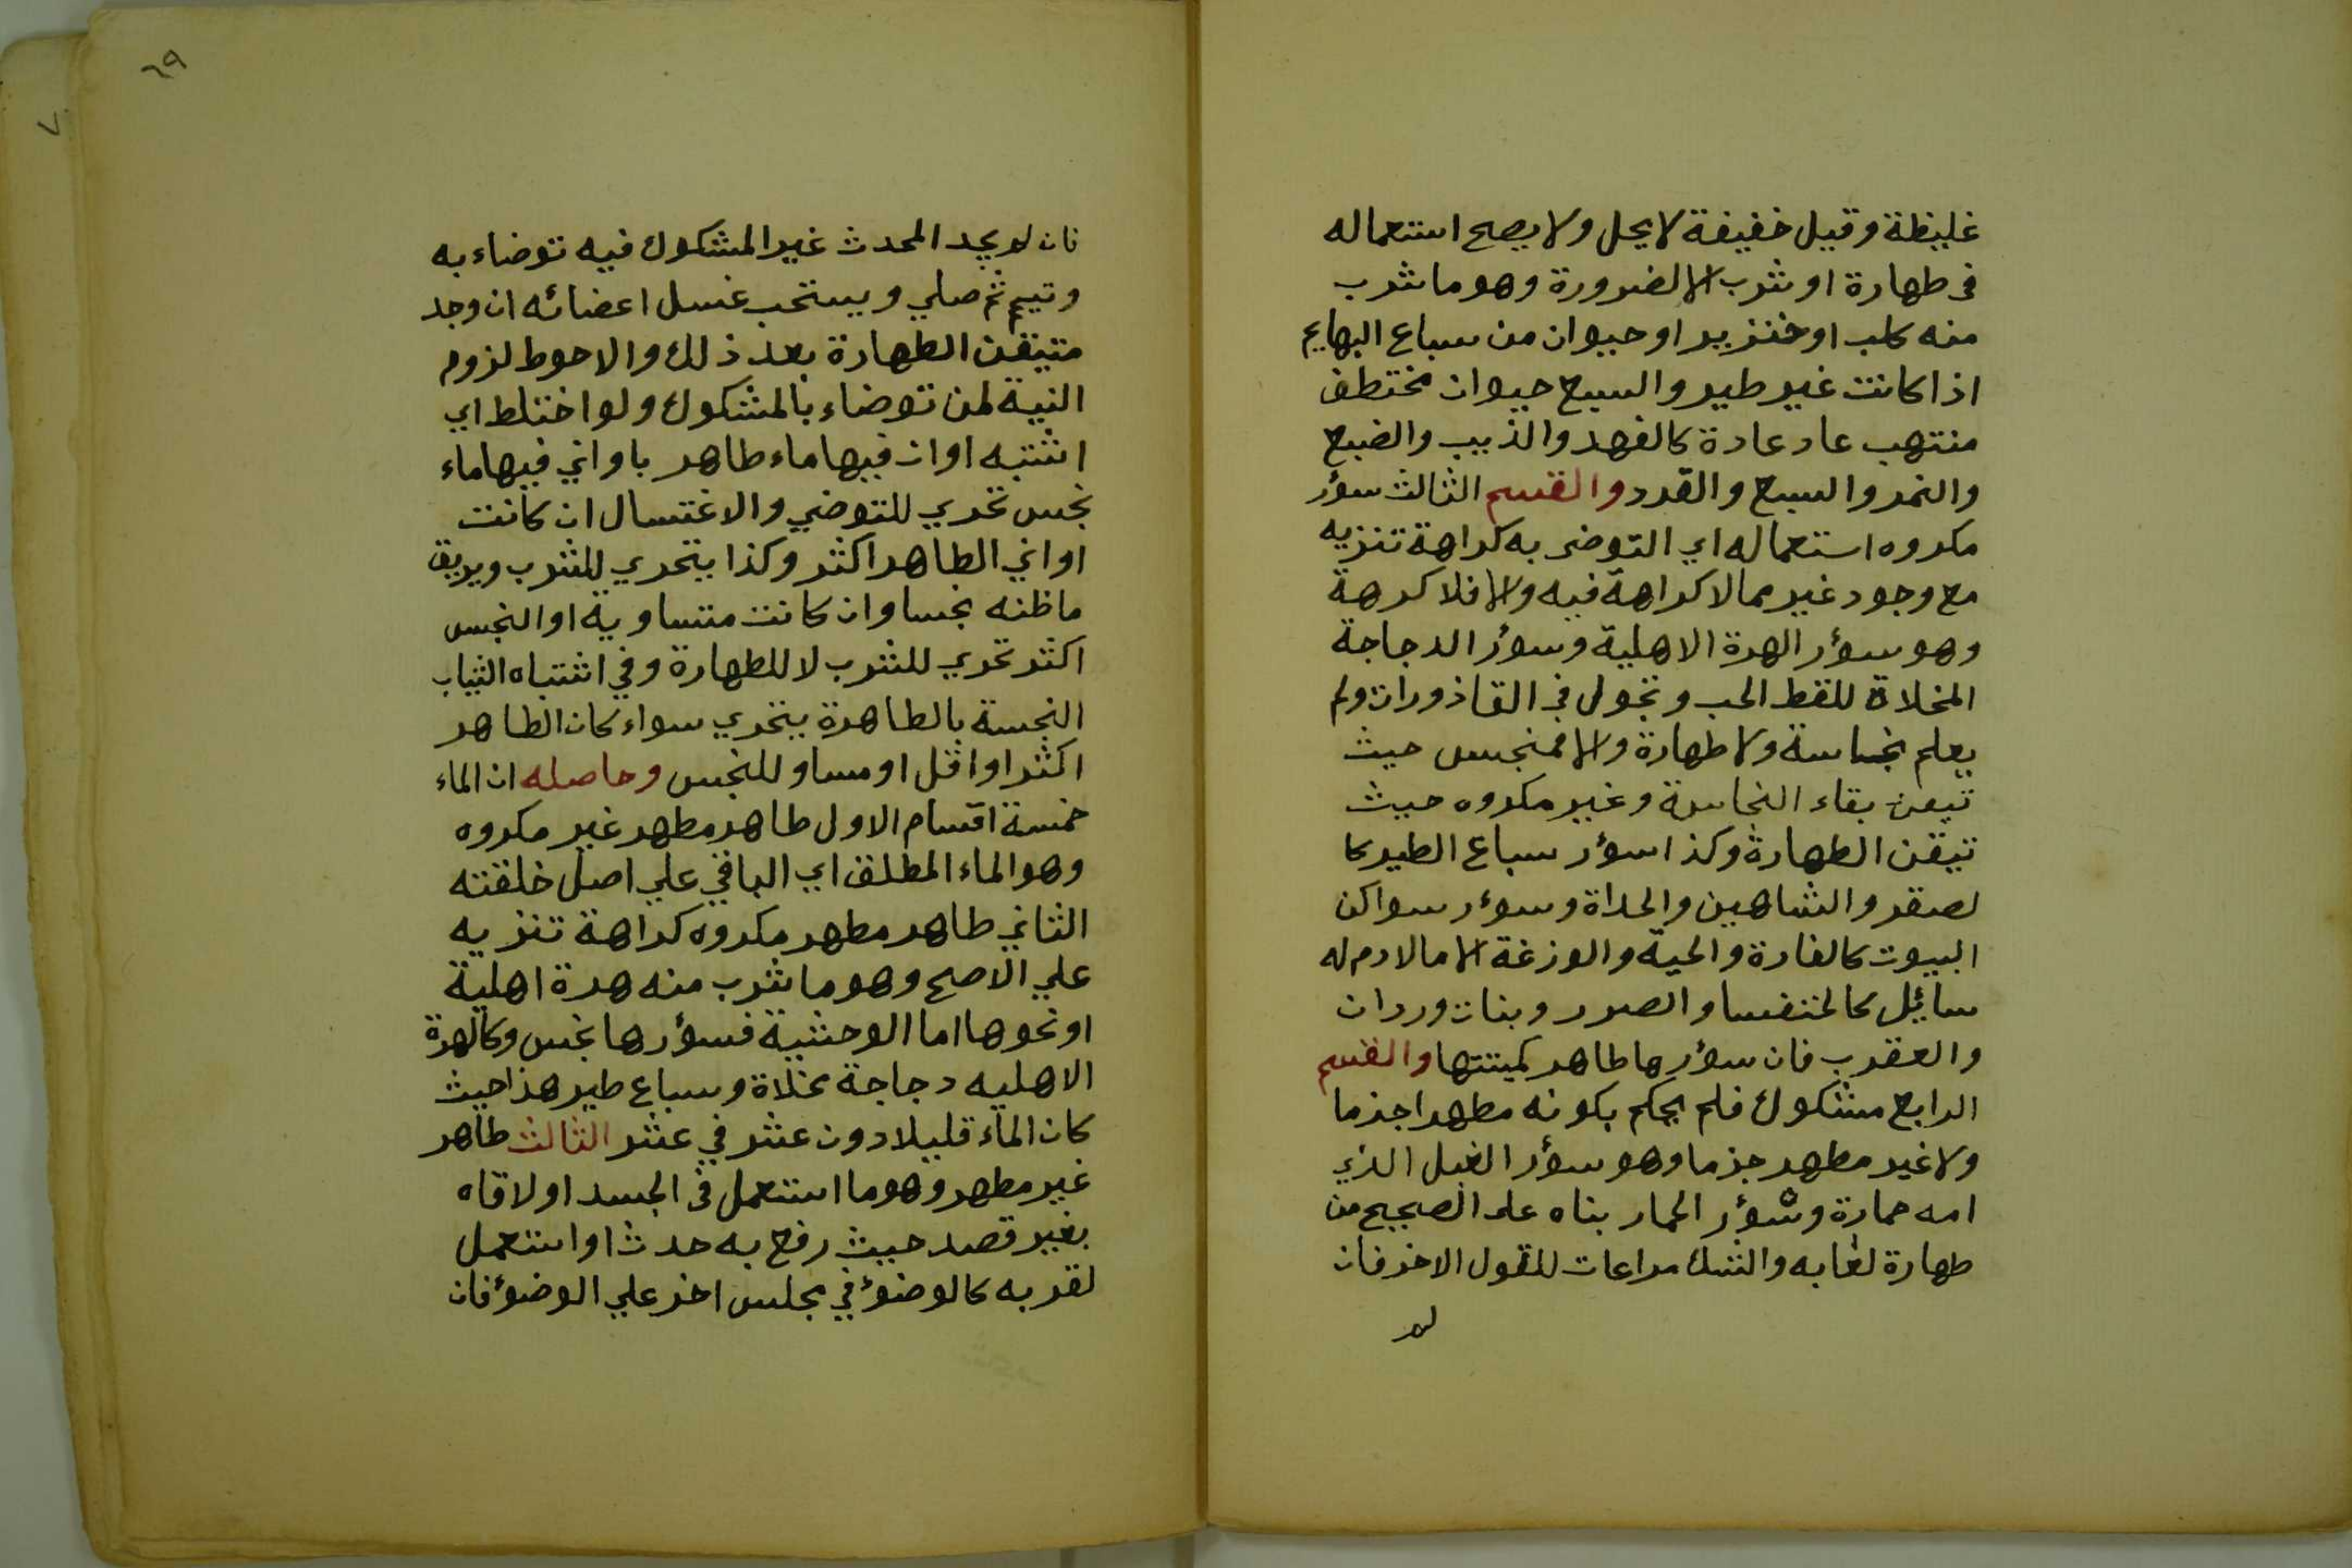 غليظة وقيل خفيفة لا يحل ولا يصح استعماله
فى طهارة او شرب الا لضرورة وهو ما شرب
منه كلب او خنزير او حيوان من سباع البهايم
اذا كانت غير طير والسبع حيوان مختطف
منتهب عاد عادة كالفهد والذيب والضبع
والنمر والسبع والقرد والقسم الثالث سؤر
مكروه استعماله اي التوضى به كراهة تنزيه
مع وجود غير مما لا كراهة فيه والا فلا كرهة
وهو سؤر الهرة الاهلية وسؤر الدجاجة
المخلاة للقط الحب وتجولى فى القاذورات ولم
يعلم نجاسة ولا طهارة والا فمنجس حيث
تيقن بقاء النجاسة وغير مكروه حيث
تيقن الطهارة وكذا سؤر سباع الطير كا
لصقر والشاهين والحداة وسوءر سواكن
البيوت كالفارة والحية والوزغة الا ما لا دم له
سائل كالخنفسا والصرر وبنات وردان
والعقرب فان سؤرها طاهر كميتتها والقسم
الرابع مشكوك فلم يحكم بكونه مطهرا جذما
ولا غير مطهر جزما وهو سؤر البغل الذي
امه حمارة وسؤر الحمار بناه على الصحيح من
طهارة لعابه والشك مراعات للقول الاخر فان
لم
٦٩
فان لم يجد المحدث غير المشكوك فيه توضاء به
وتيمم ثم صلي ويستحب غسل اعضائه ان وجد
متيقن الطهارة بعد ذلك والاحوط لزوم
النية لمن توضاء بالمشكوك ولو اختلط اي
اشتبه اوان فيها ماء طاهر باواني فيها ماء
نجس تحري للتوضي والاغتسال ان كانت
اواني الطاهر اكثر وكذا يتحري للشرب ويريق
ما ظنه نجسا وان كانت متساوية او النجس
اكثر تحري للشرب لا للطهارة وفي اشتباه الثياب
النجسة بالطاهرة يتحري سواء كان الطاهر
اكثر او اقل او مساو للنجس وحاصله ان الماء
خمسة اقسام الاول طاهر مطهر غير مكروه
وهو الماء المطلق اي الباقي علي اصل خلقته
الثاني طاهر مطهر مكروه كراهة تنزيه
علي الاصح وهو ما شرب منه هرة اهلية
او نحوها اما الوحشية فسؤرها نجس وكالهرة
الاهليه دجاجة مخلاة وسباع طير هذا حيث
كان الماء قليلا دون عشر في عشر الثالث طاهر
غير مطهر وهو ما استعمل فى الجسد او لاقاه
بغير قصد حيث رفع به حدث او استعمل
لقربه كالوضوء في مجلس اخر علي الوضوء فان
٧